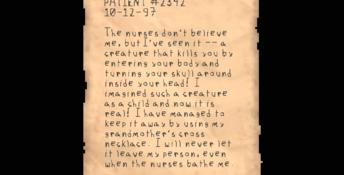 PATIENT #2342
10-12-97
The nurses don't believe
me, but I've seen it -- a
creature that kills you by
entering your body and
turning your skull around
inside your head! I
imagined such a creature
as a child and now it is
real! I have managed to
keep it away by using my
grandmother's cross
necklace. I will never let
it leave my person, even
when the nurses bathe me.